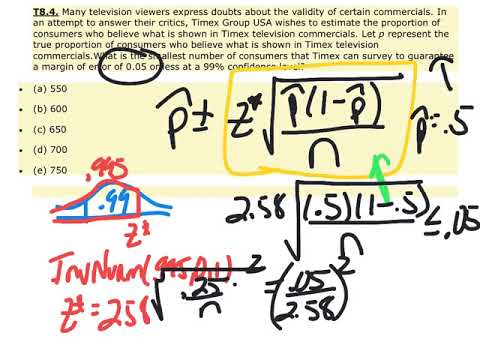 T8.4. Many television viewers express doubts about the validity of certain commercials. In
an attempt to answer their critics, Timex Group USA wishes to estimate the proportion of
consumers who believe what is shown in Timex television commercials. Let p represent the
true proportion of consumers who believe what is shown in Timex television
commercials.What is the smallest number of consumers that Timex can survey to guarantee
a margin of error of 0.05 or less at a 99% confidence level?
• (a) 550
• (b) 600
• (c) 650
• (d) 700
• (e) 750
p̂ ± z* √(p̂(1-p̂)/n) p̂=.5
.995
.99
z*
2.58 √((.5)(1-.5)/n) ≤ .05
InvNorm(.995,0,1)
z* = 2.58
√(.25/n)² = (.05/2.58)²